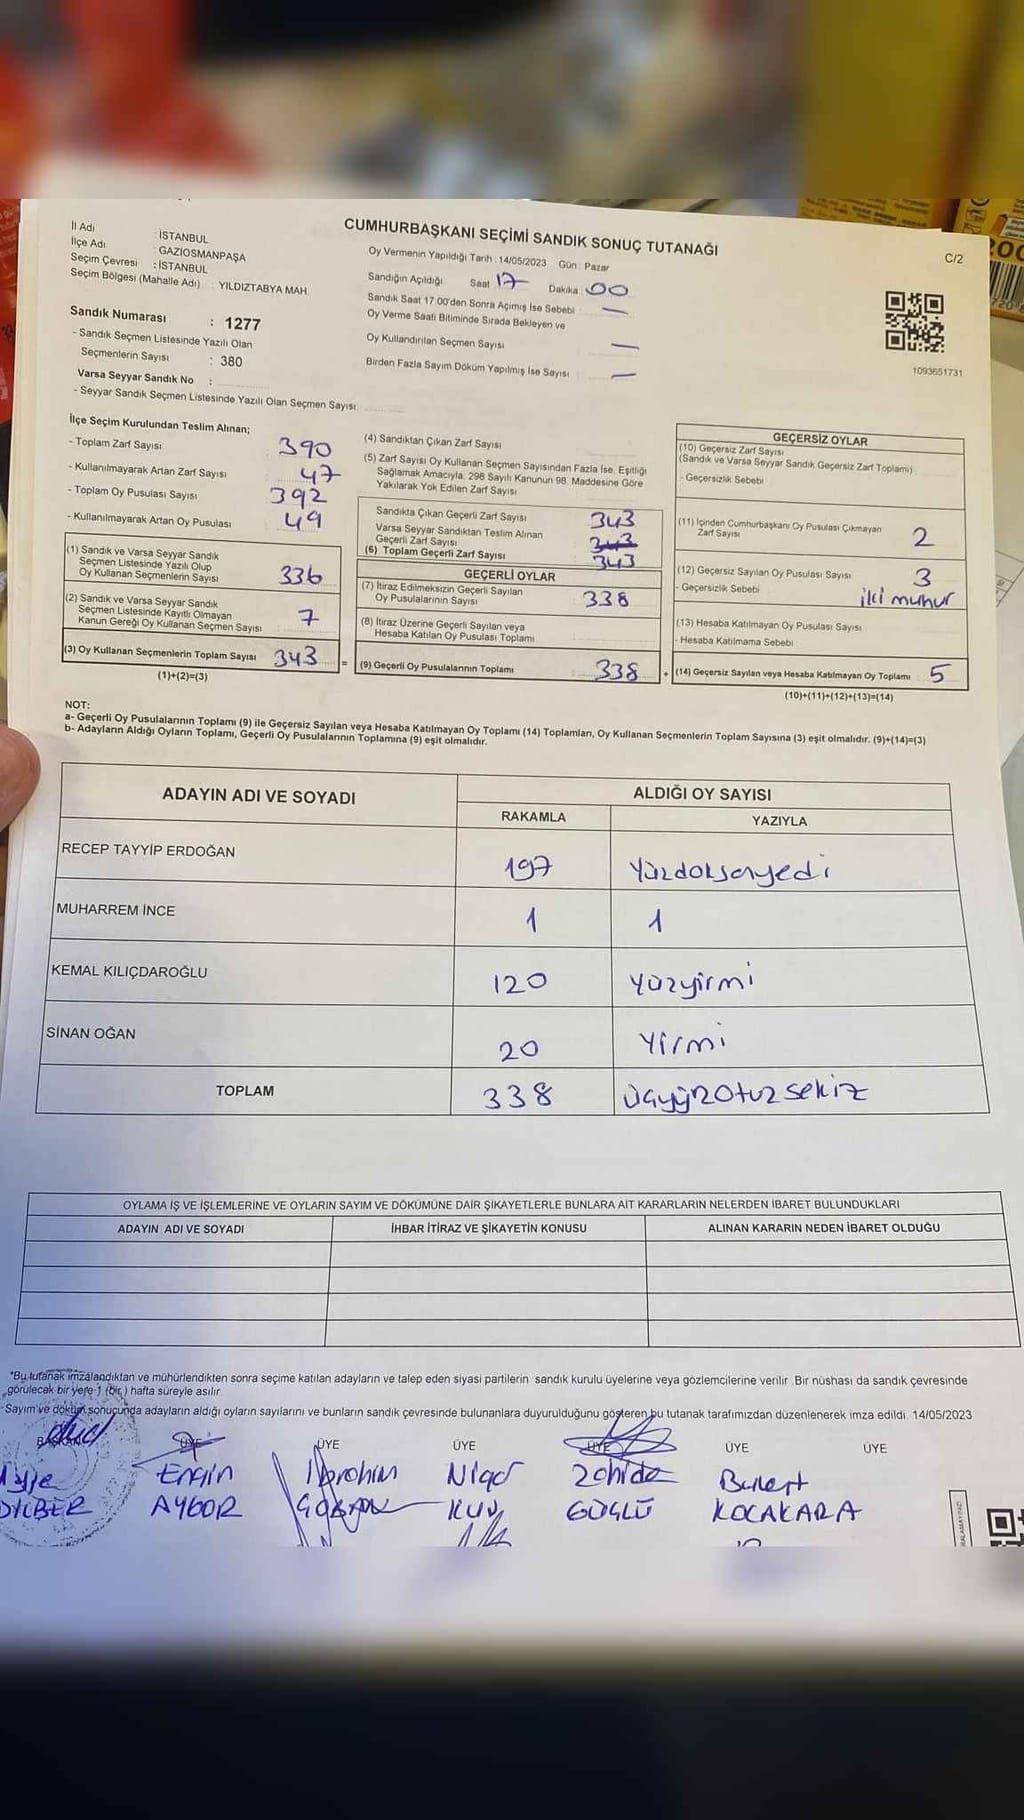 CUMHURBAŞKANI SEÇİMİ SANDIK SONUÇ TUTANAĞI
C/2
İl Adı : İSTANBUL
İlçe Adı : GAZİOSMANPAŞA
Seçim Çevresi : İSTANBUL
Seçim Bölgesi (Mahalle Adı) : YILDIZTABYA MAH.
Sandık Numarası : 1277
- Sandık Seçmen Listesinde Yazılı Olan
Seçmenlerin Sayısı : 380
Varsa Seyyar Sandık No :
- Seyyar Sandık Seçmen Listesinde Yazılı Olan Seçmen Sayısı
Oy Vermenin Yapıldığı Tarih : 14/05/2023 Gün : Pazar
Sandığın Açıldığı Saat 17 Dakika 00
Sandık Saat 17:00'den Sonra Açımış İse Sebebi : —
Oy Verme Saati Bitiminde Sırada Bekleyen ve
Oy Kullandırılan Seçmen Sayısı —
Birden Fazla Sayım Döküm Yapılmış İse Sayısı —
1093651731
İlçe Seçim Kurulundan Teslim Alınan;
- Toplam Zarf Sayısı 390
- Kullanılmayarak Artan Zarf Sayısı 47
- Toplam Oy Pusulası Sayısı 392
- Kullanılmayarak Artan Oy Pusulası 49
(1) Sandık ve Varsa Seyyar Sandık
Seçmen Listesinde Yazılı Olup
Oy Kullanan Seçmenlerin Sayısı 336
(2) Sandık ve Varsa Seyyar Sandık
Seçmen Listesinde Kayıtlı Olmayan
Kanun Gereği Oy Kullanan Seçmen Sayısı 7
(3) Oy Kullanan Seçmenlerin Toplam Sayısı 343 =
(1)+(2)=(3)
(4) Sandıktan Çıkan Zarf Sayısı
(5) Zarf Sayısı Oy Kullanan Seçmen Sayısından Fazla İse, Eşitliği
Sağlamak Amacıyla, 298 Sayılı Kanunun 98. Maddesine Göre
Yakılarak Yok Edilen Zarf Sayısı
Sandıkta Çıkan Geçerli Zarf Sayısı 343
Varsa Seyyar Sandıktan Teslim Alınan
Geçerli Zarf Sayısı 343
(6) Toplam Geçerli Zarf Sayısı 343
GEÇERLİ OYLAR
(7) İtiraz Edilmeksizin Geçerli Sayılan
Oy Pusulalarının Sayısı 338
(8) İtiraz Üzerine Geçerli Sayılan veya
Hesaba Katılan Oy Pusulası Toplamı
(9) Geçerli Oy Pusulalarının Toplamı 338 +
GEÇERSİZ OYLAR
(10) Geçersiz Zarf Sayısı
(Sandık ve Varsa Seyyar Sandık Geçersiz Zarf Toplamı)
- Geçersizlik Sebebi
(11) İçinden Cumhurbaşkanı Oy Pusulası Çıkmayan
Zarf Sayısı 2
(12) Geçersiz Sayılan Oy Pusulası Sayısı 3
- Geçersizlik Sebebi iki mühür
(13) Hesaba Katılmayan Oy Pusulası Sayısı
- Hesaba Katılmama Sebebi
(14) Geçersiz Sayılan veya Hesaba Katılmayan Oy Toplamı 5
(10)+(11)+(12)+(13)=(14)
NOT:
a- Geçerli Oy Pusulalarının Toplamı (9) ile Geçersiz Sayılan veya Hesaba Katılmayan Oy Toplamı (14) Toplamları, Oy Kullanan Seçmenlerin Toplam Sayısına (3) eşit olmalıdır. (9)+(14)=(3)
b- Adayların Aldığı Oyların Toplamı, Geçerli Oy Pusulalarının Toplamına (9) eşit olmalıdır.
ADAYIN ADI VE SOYADI
ALDIĞI OY SAYISI
RAKAMLA YAZIYLA
RECEP TAYYİP ERDOĞAN 197 Yüzdoksanyedi
MUHARREM İNCE 1 1
KEMAL KILIÇDAROĞLU 120 Yüzyirmi
SİNAN OĞAN 20 Yirmi
TOPLAM 338 üçyüzotuzsekiz
OYLAMA İŞ VE İŞLEMLERİNE VE OYLARIN SAYIM VE DÖKÜMÜNE DAİR ŞİKAYETLERLE BUNLARA AİT KARARLARIN NELERDEN İBARET BULUNDUKLARI
ADAYIN ADI VE SOYADI İHBAR İTİRAZ VE ŞİKAYETİN KONUSU ALINAN KARARIN NEDEN İBARET OLDUĞU
*Bu tutanak imzalandıktan ve mühürlendikten sonra seçime katılan adayların ve talep eden siyasi partilerin sandık kurulu üyelerine veya gözlemcilerine verilir. Bir nüshası da sandık çevresinde
görülecek bir yere 1 (bir) hafta süreyle asılır.
Sayım ve döküm sonucunda adayların aldığı oyların sayılarını ve bunların sandık çevresinde bulunanlara duyurulduğunu gösteren bu tutanak tarafımızdan düzenlenerek imza edildi. 14/05/2023
BAŞKAN ÜYE ÜYE ÜYE ÜYE ÜYE ÜYE
Ayşe Engin İbrahim Zahide Bülent
DİLBER GÜÇLÜ KOCAKARA